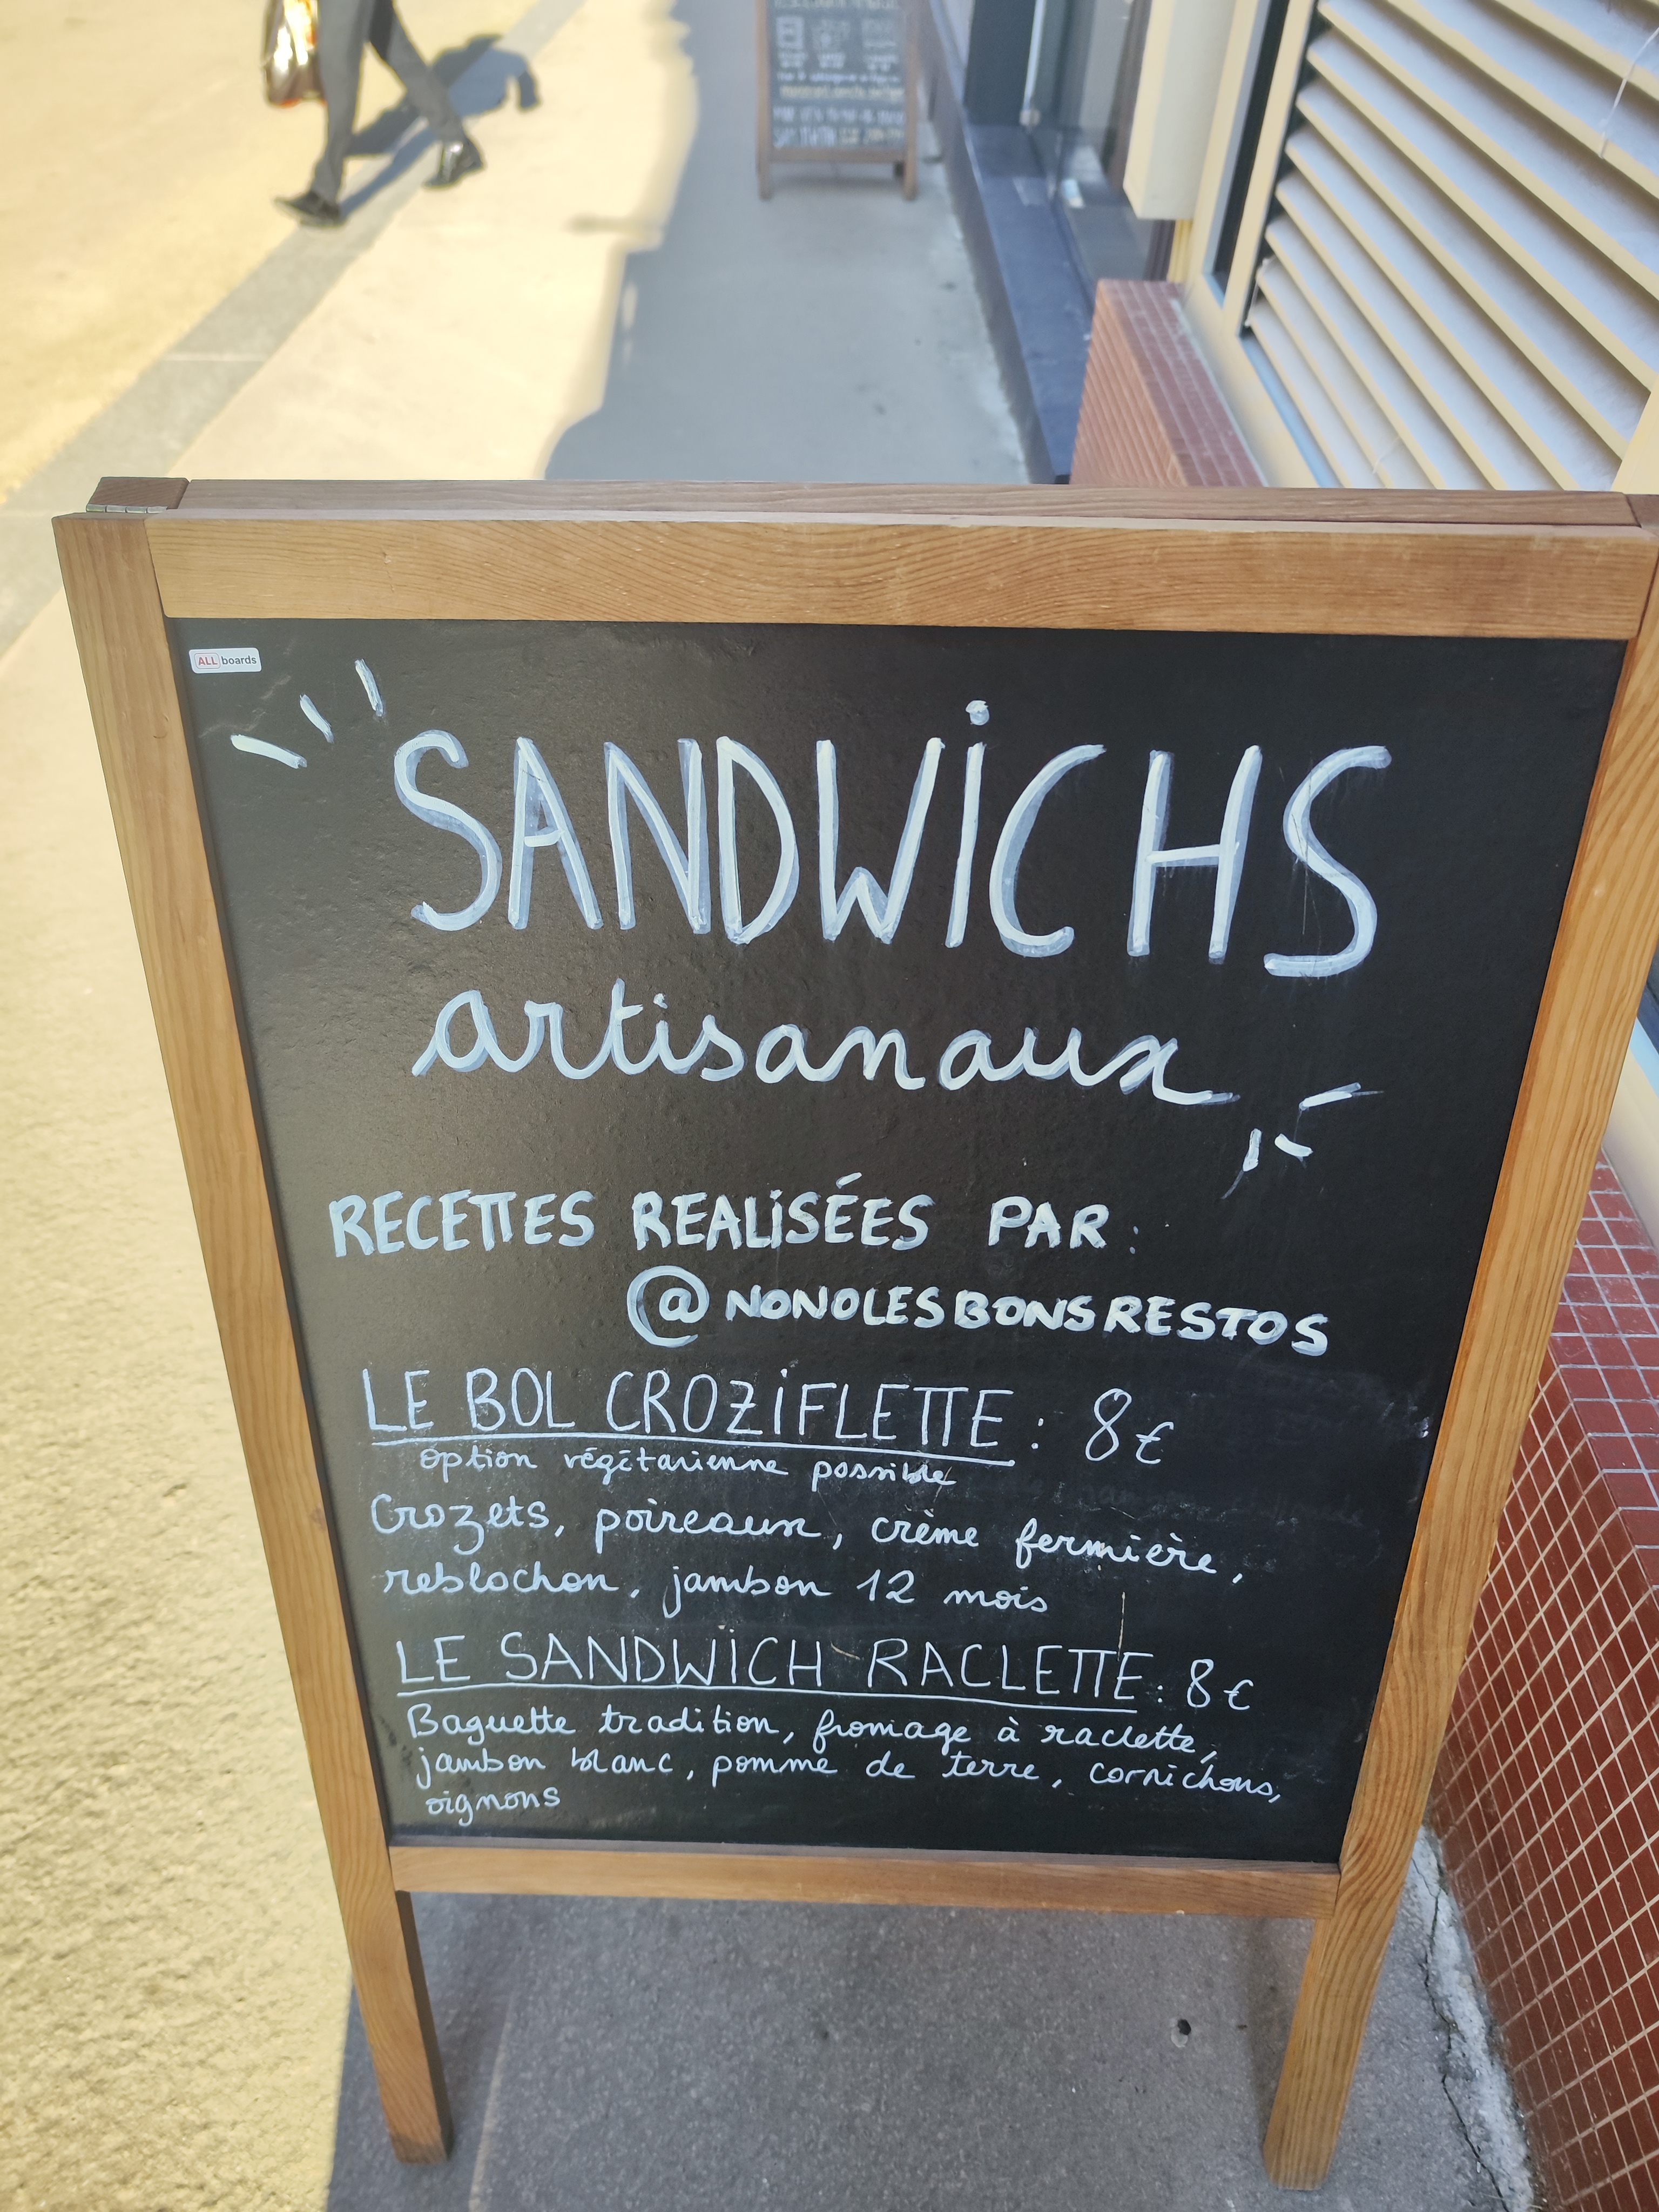 ALL boards
SANDWiCHS
artisanaux
RECETTES REALiSÉES PAR:
@NONOLESBONSRESTOS
LE BOL CROZiFLETTE : 8€
option végétarienne possible
Crozets, poireaux, crème fermière,
reblochon, jambon 12 mois
LE SANDWiCH RACLETTE : 8€
Baguette tradition, fromage à raclette,
jambon blanc, pomme de terre, cornichons,
oignons